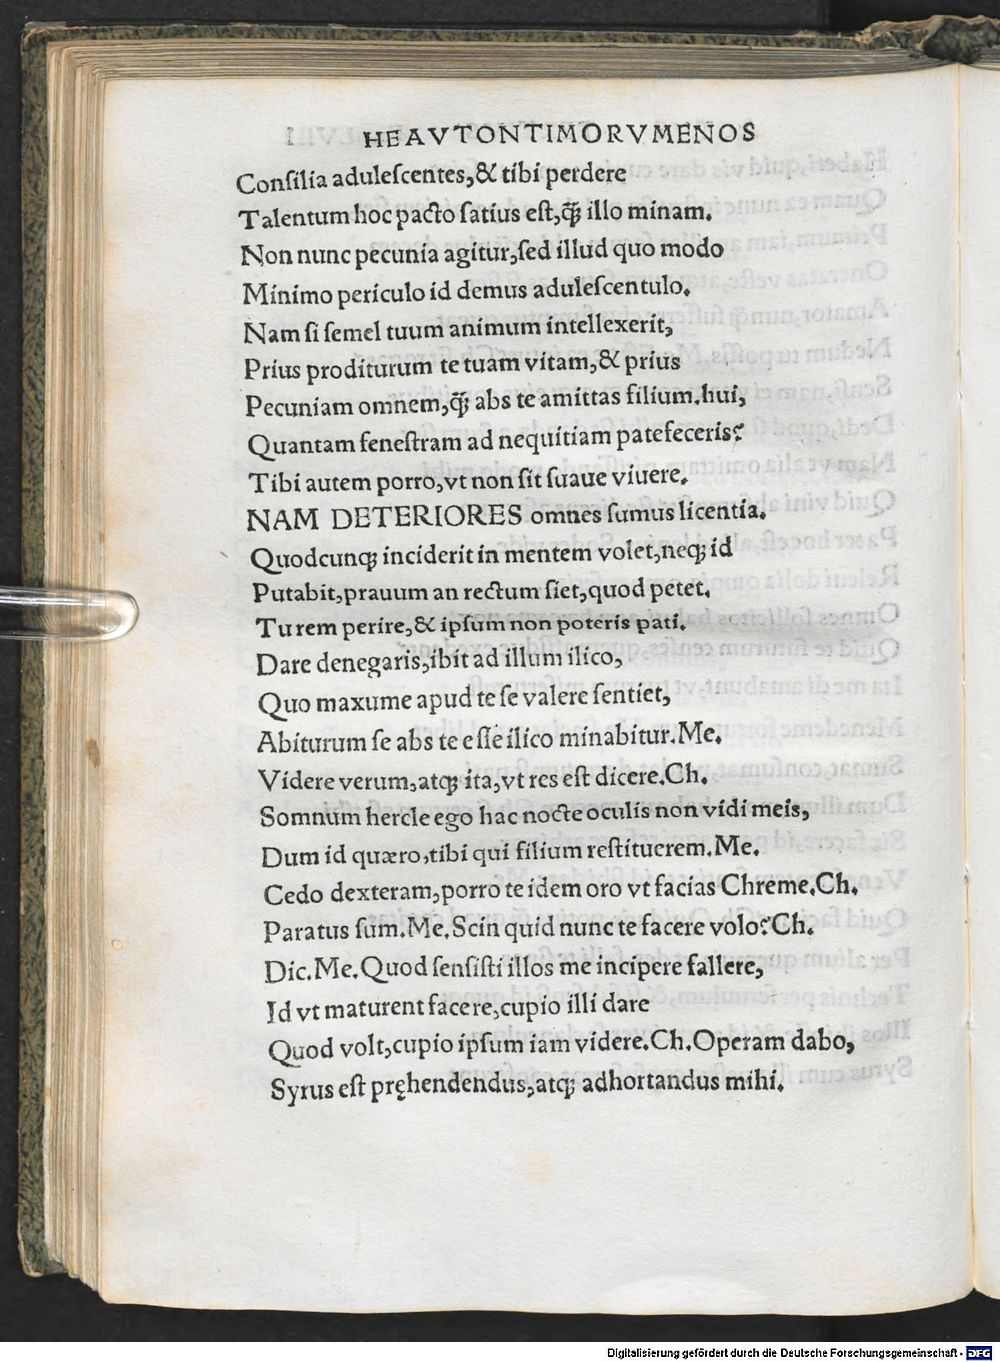 HEAVTONTIMORVMENOS
Conſilia aduleſcentes,& tibi perdere
Talentum hoc pacto ſatius eſt,q̃ꝫ illo minam.
Non nunc pecunia agitur,ſed illud quo modo
Minimo periculo id demus aduleſcentulo.
Nam ſi ſemel tuum animum intellexerit,
Prius proditurum te tuam vitam,& prius
Pecuniam omnem,q̃ꝫ abs te amittas filium.hui,
Quantam feneſtram ad nequitiam patefeceris?
Tibi autem porro,vt non ſit ſuaue viuere.
NAM DETERIORES omnes ſumus licentia.
Quodcunqꝫ inciderit in mentem volet,neqꝫ id
Putabit,prauum an rectum ſiet,quod petet.
Tu rem perire,& ipſum non poteris pati.
Dare denegaris,ibit ad illum ilico,
Quo maxume apud te ſe valere ſentiet,
Abiturum ſe abs te eſſe ilico minabitur.Me.
Videre verum,atqꝫ ita,vt res eſt dicere.Ch.
Somnum hercle ego hac nocte oculis non vidi meis,
Dum id quæro,tibi qui filium reſtituerem.Me.
Cedo dexteram,porro te idem oro vt facias Chreme.Ch.
Paratus ſum.Me.Scin quid nunc te facere volo?Ch.
Dic.Me.Quod ſenſiſti illos me incipere fallere,
Id vt maturent facere,cupio illi dare
Quod volt,cupio ipſum iam videre.Ch.Operam dabo,
Syrus eſt pręhendendus,atqꝫ adhortandus mihi.
Digitalisierung gefördert durch die Deutsche Forschungsgemeinschaft - DFG